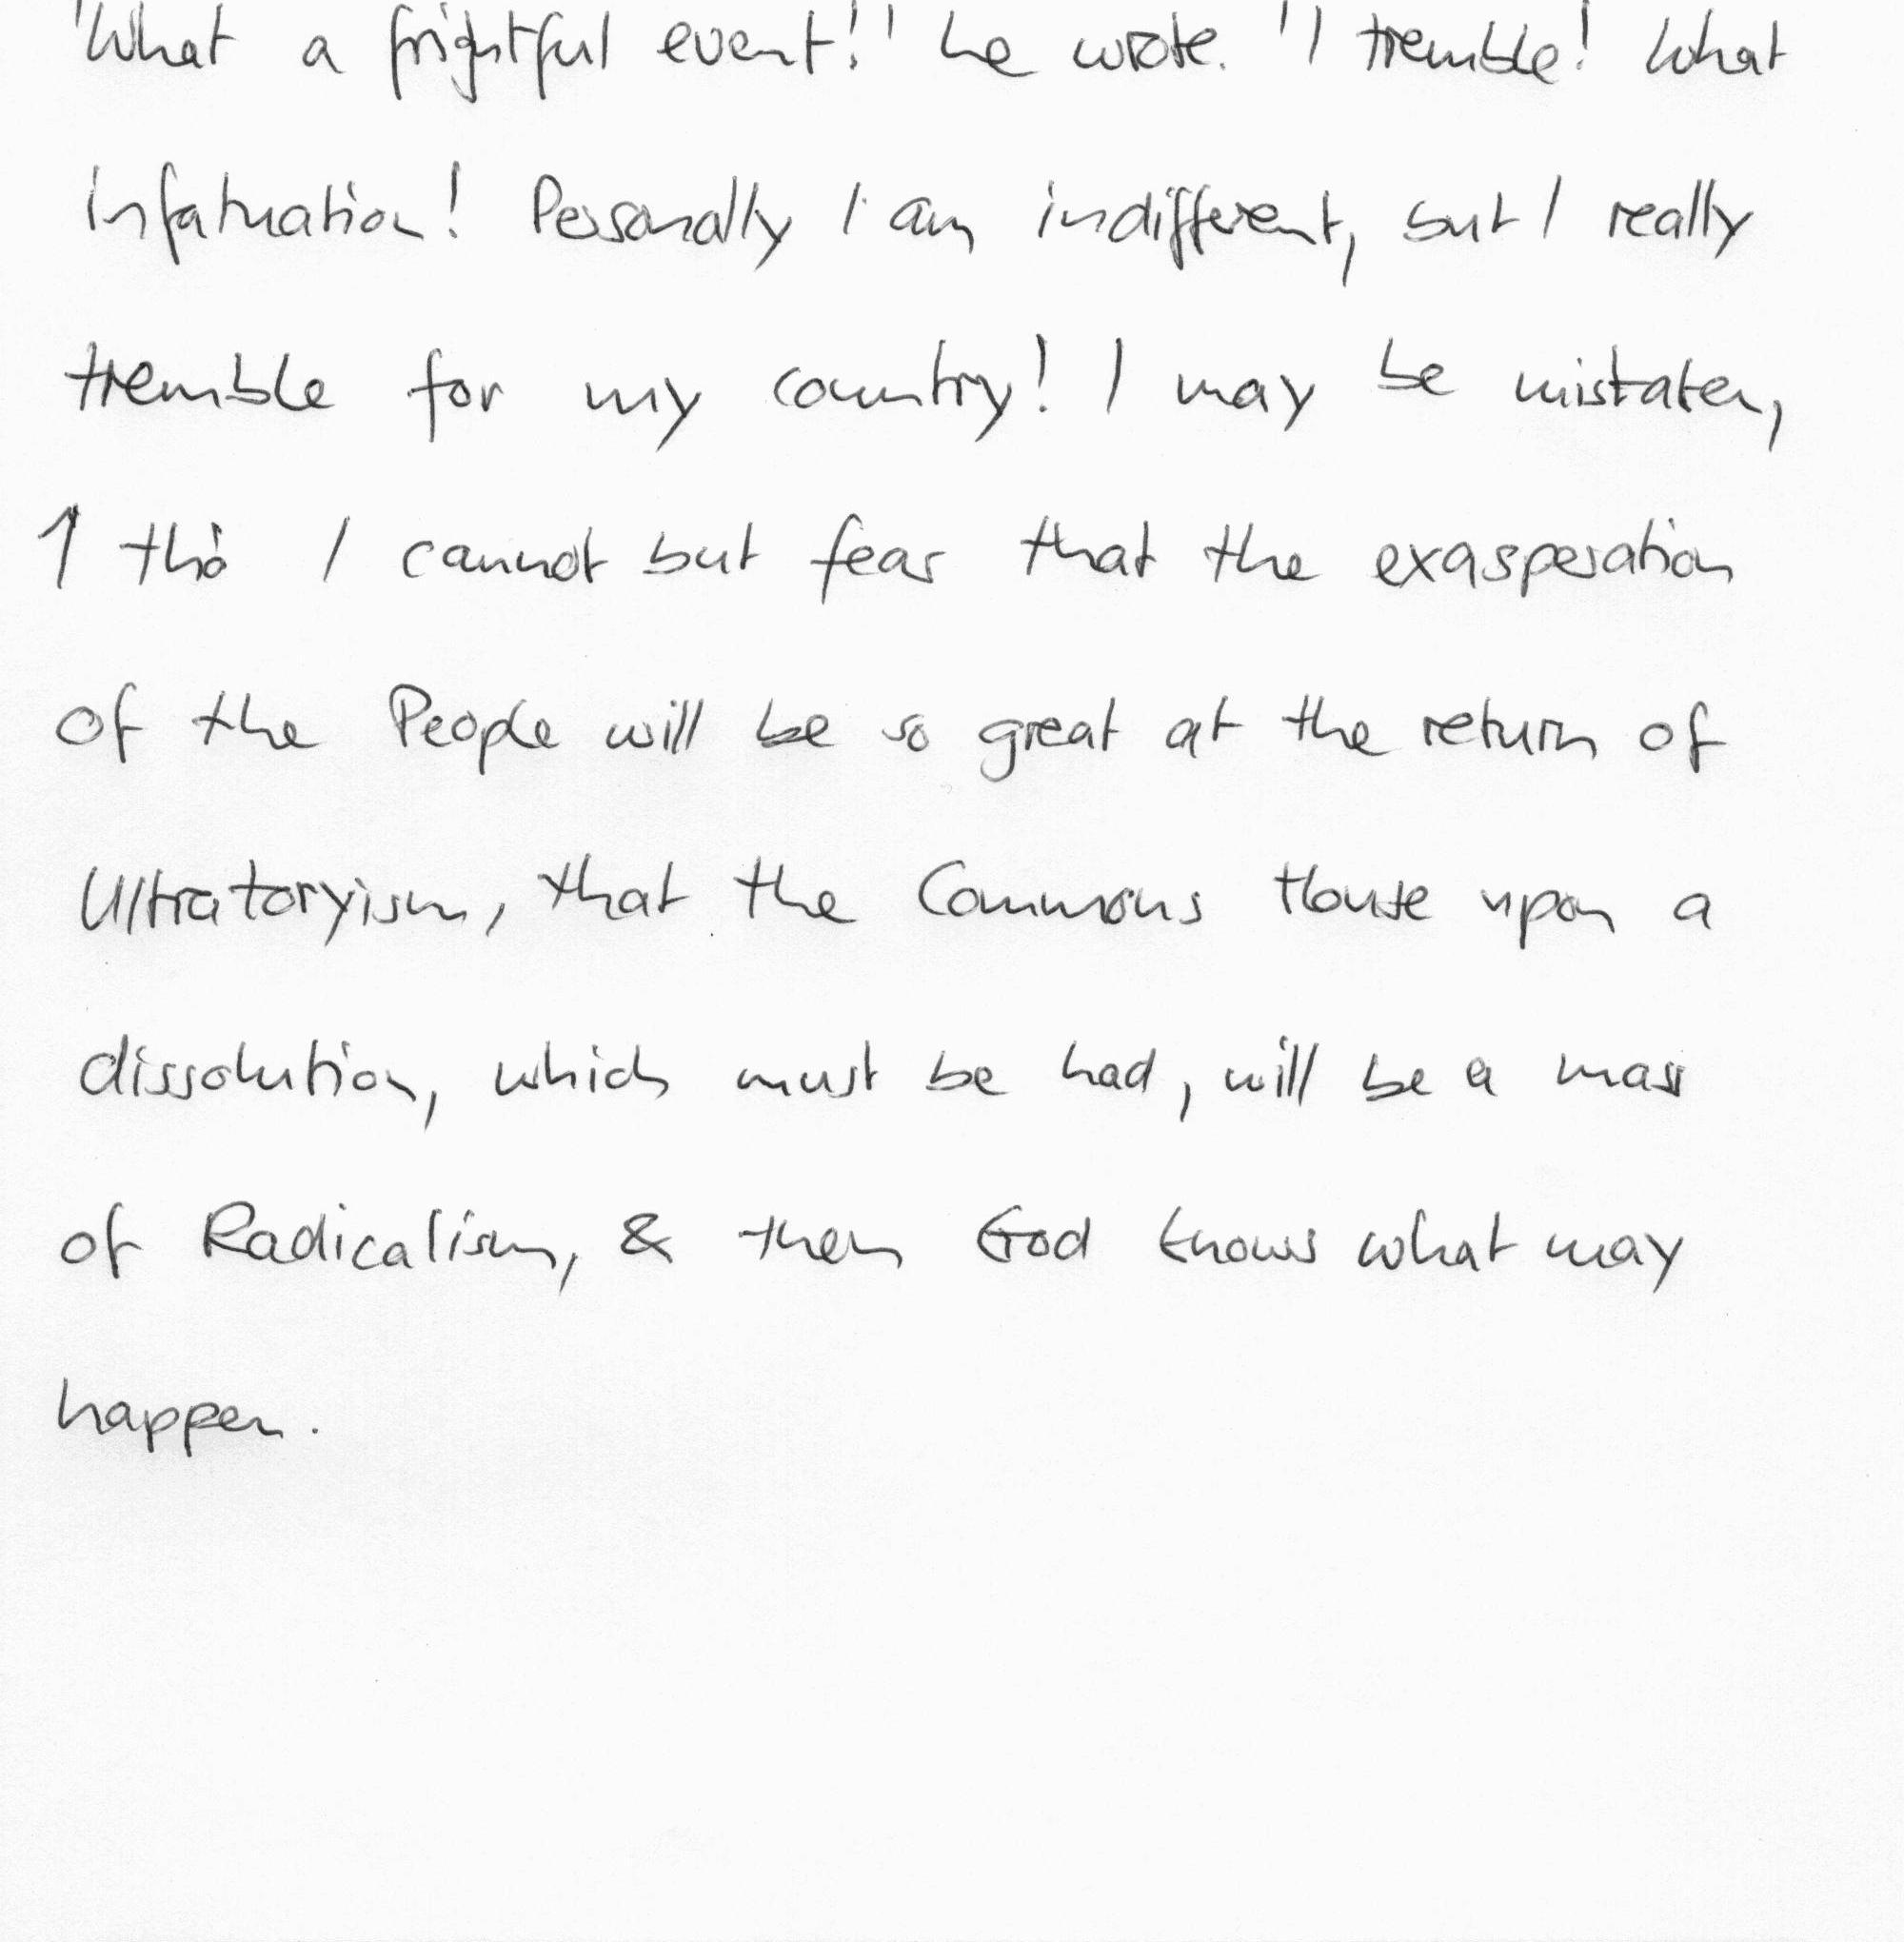 'What a frightful event!' he wrote. 'I tremble! What
infatuation! Personally I am indifferent, but I really
tremble for my country! I may be mistaken,
I tho' I cannot but fear that the exasperation
of the People will be so great at the return of
Ultratoryism, that the Commons House upon a
dissolution, which must be had, will be a mass
of Radicalism, & then God knows what may
happen.